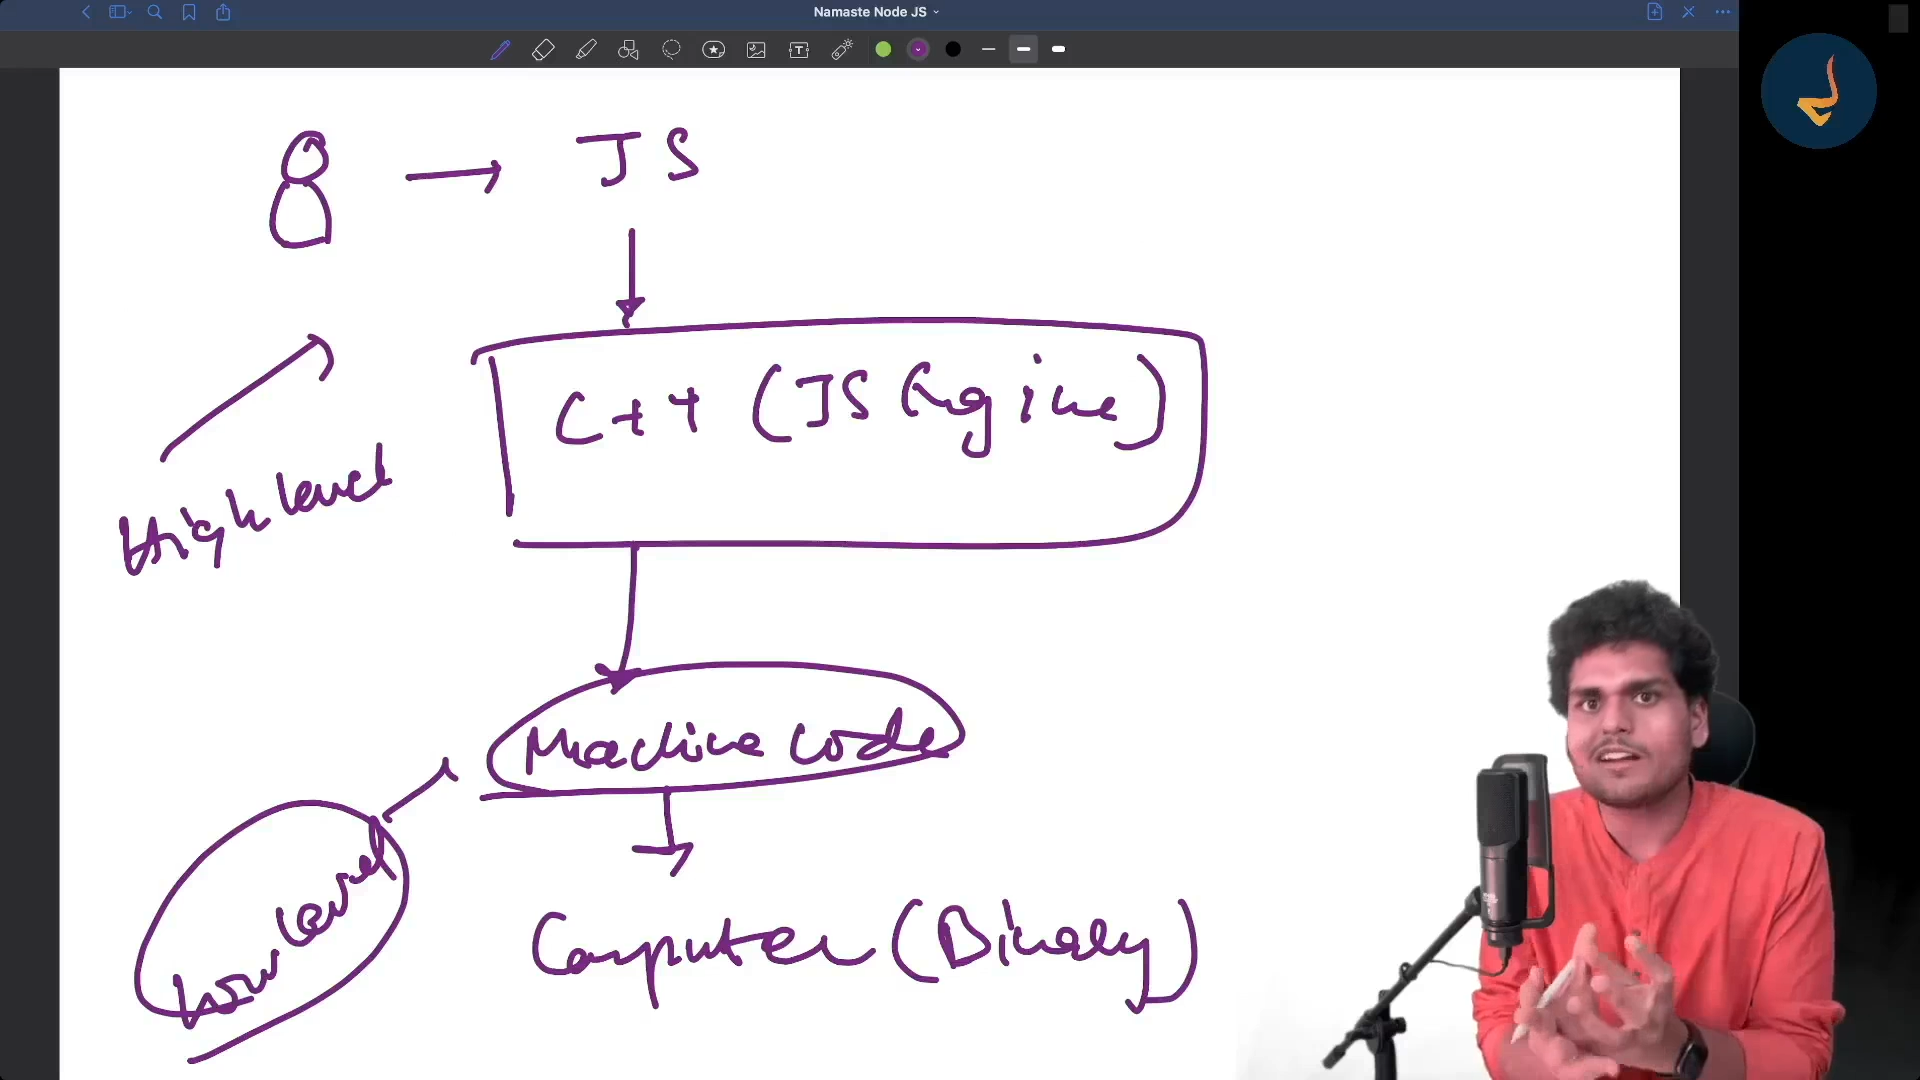 Namaste Node JS
JS
C++ (JS Engine)
High level
Machine code
Low level
Computer (Binary)